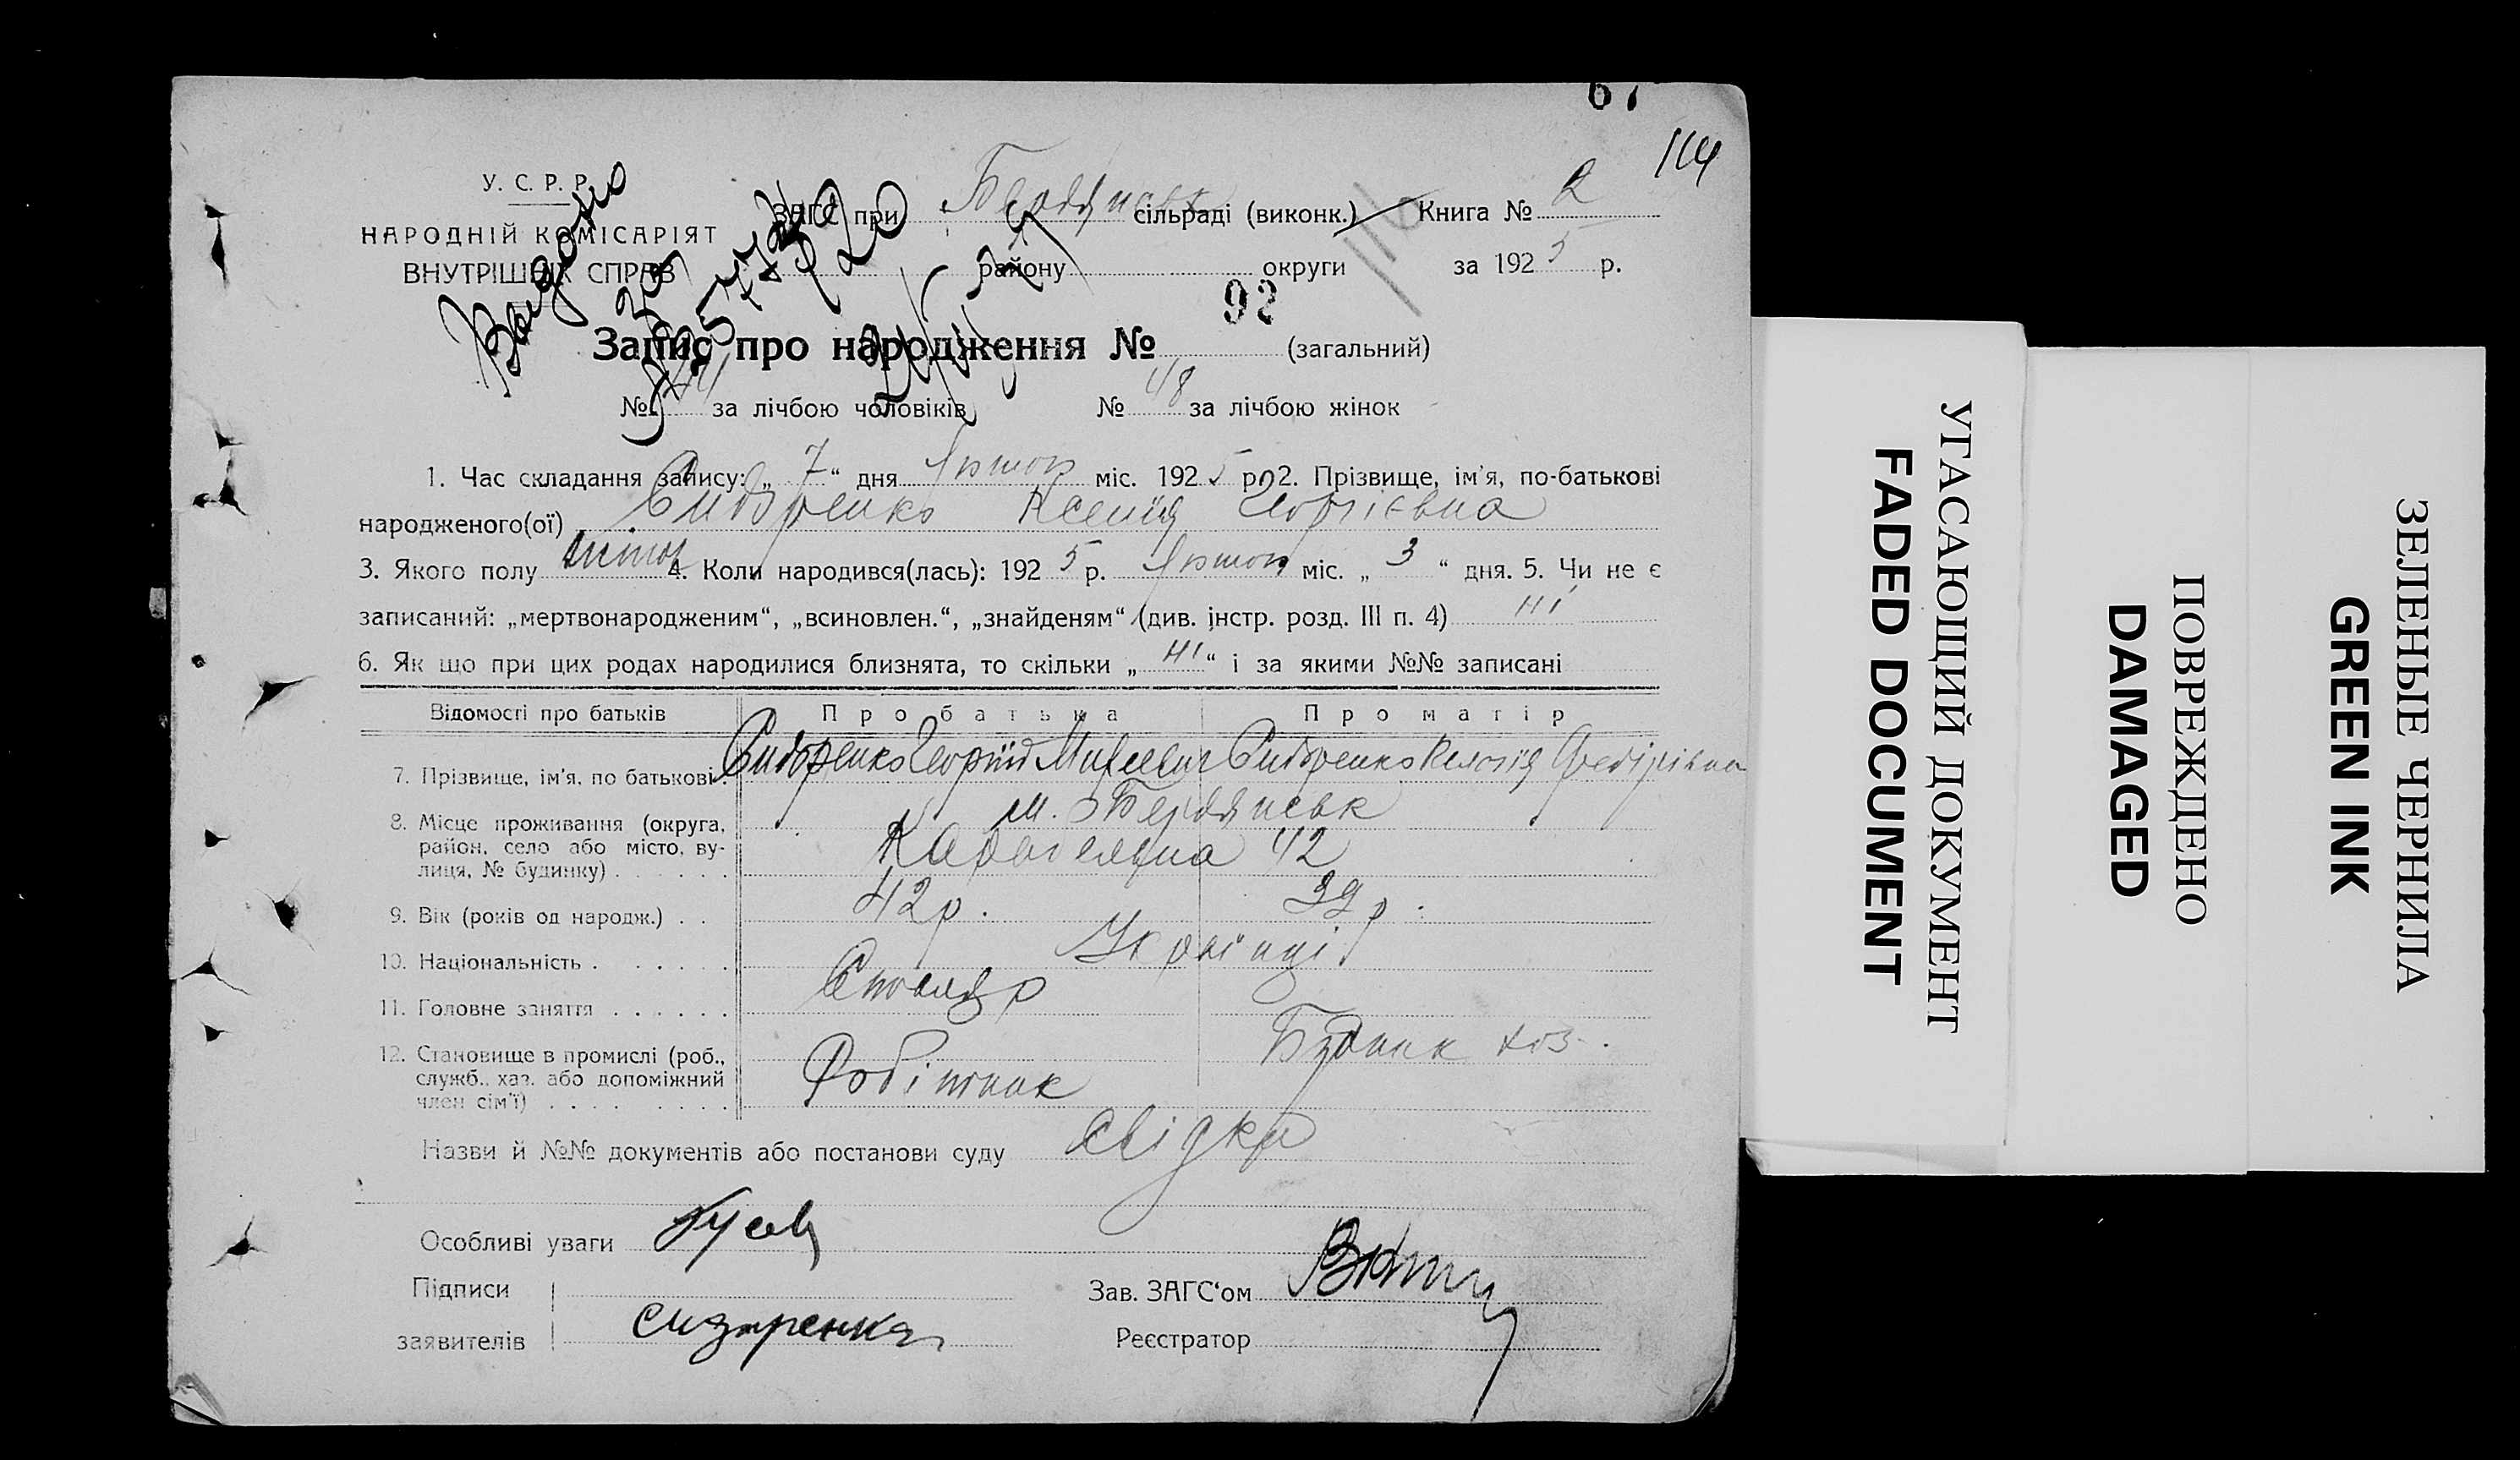 67
114
У. С. Р. Р.
НАРОДНІЙ КОМІСАРІЯТ
ВНУТРІШНІХ СПРАВ
Видано
ЗАГС при Бердянськ сільраді (виконк.) Книга № 2
району округи за 1925 р.
116
Запис про народження № 92 (загальний)
№ 44 за лічбою чоловіків № 48 за лічбою жінок
1. Час складання запису: „ 7 “ дня Лютого міс. 1925 р. 2. Прізвище, ім'я, по-батькові
народженого(ої) Сидоренко Ксенія Георгієвна
3. Якого полу жіноч 4. Коли народився(лась): 1925 р. Лютого міс. „ 3 “ дня. 5. Чи не є
записаний: „мертвонародженим“, „всиновлен.“, „знайденям“ (див. інстр. розд. III п. 4) ні
6. Як що при цих родах народилися близнята, то скільки „ ні “ і за якими №№ записані
Відомості про батьків Про батька Про матір
7. Прізвище, ім'я, по батькові. Сидоренко Георгій Сидоренко Федорівна
8. Місце проживання (округа, район, село або місто, вулиця, № будинку) м. Бердянськ
42
9. Вік (років од народж.) 42 р. 39 р.
10. Національність Українці
11. Головне заняття Столяр
12. Становище в промислі (роб., служб., хаз. або допоміжний член сім'ї) Робітник Домаш хоз.
Назви й №№ документів або постанови суду свідки
Особливі уваги Гусев
Підписи
заявителів Сидоренко
Зав. ЗАГС'ом
Реєстратор
УГАСАЮЩИЙ ДОКУМЕНТ
FADED DOCUMENT
ПОВРЕЖДЕНО
DAMAGED
ЗЕЛЕНЫЕ ЧЕРНИЛА
GREEN INK